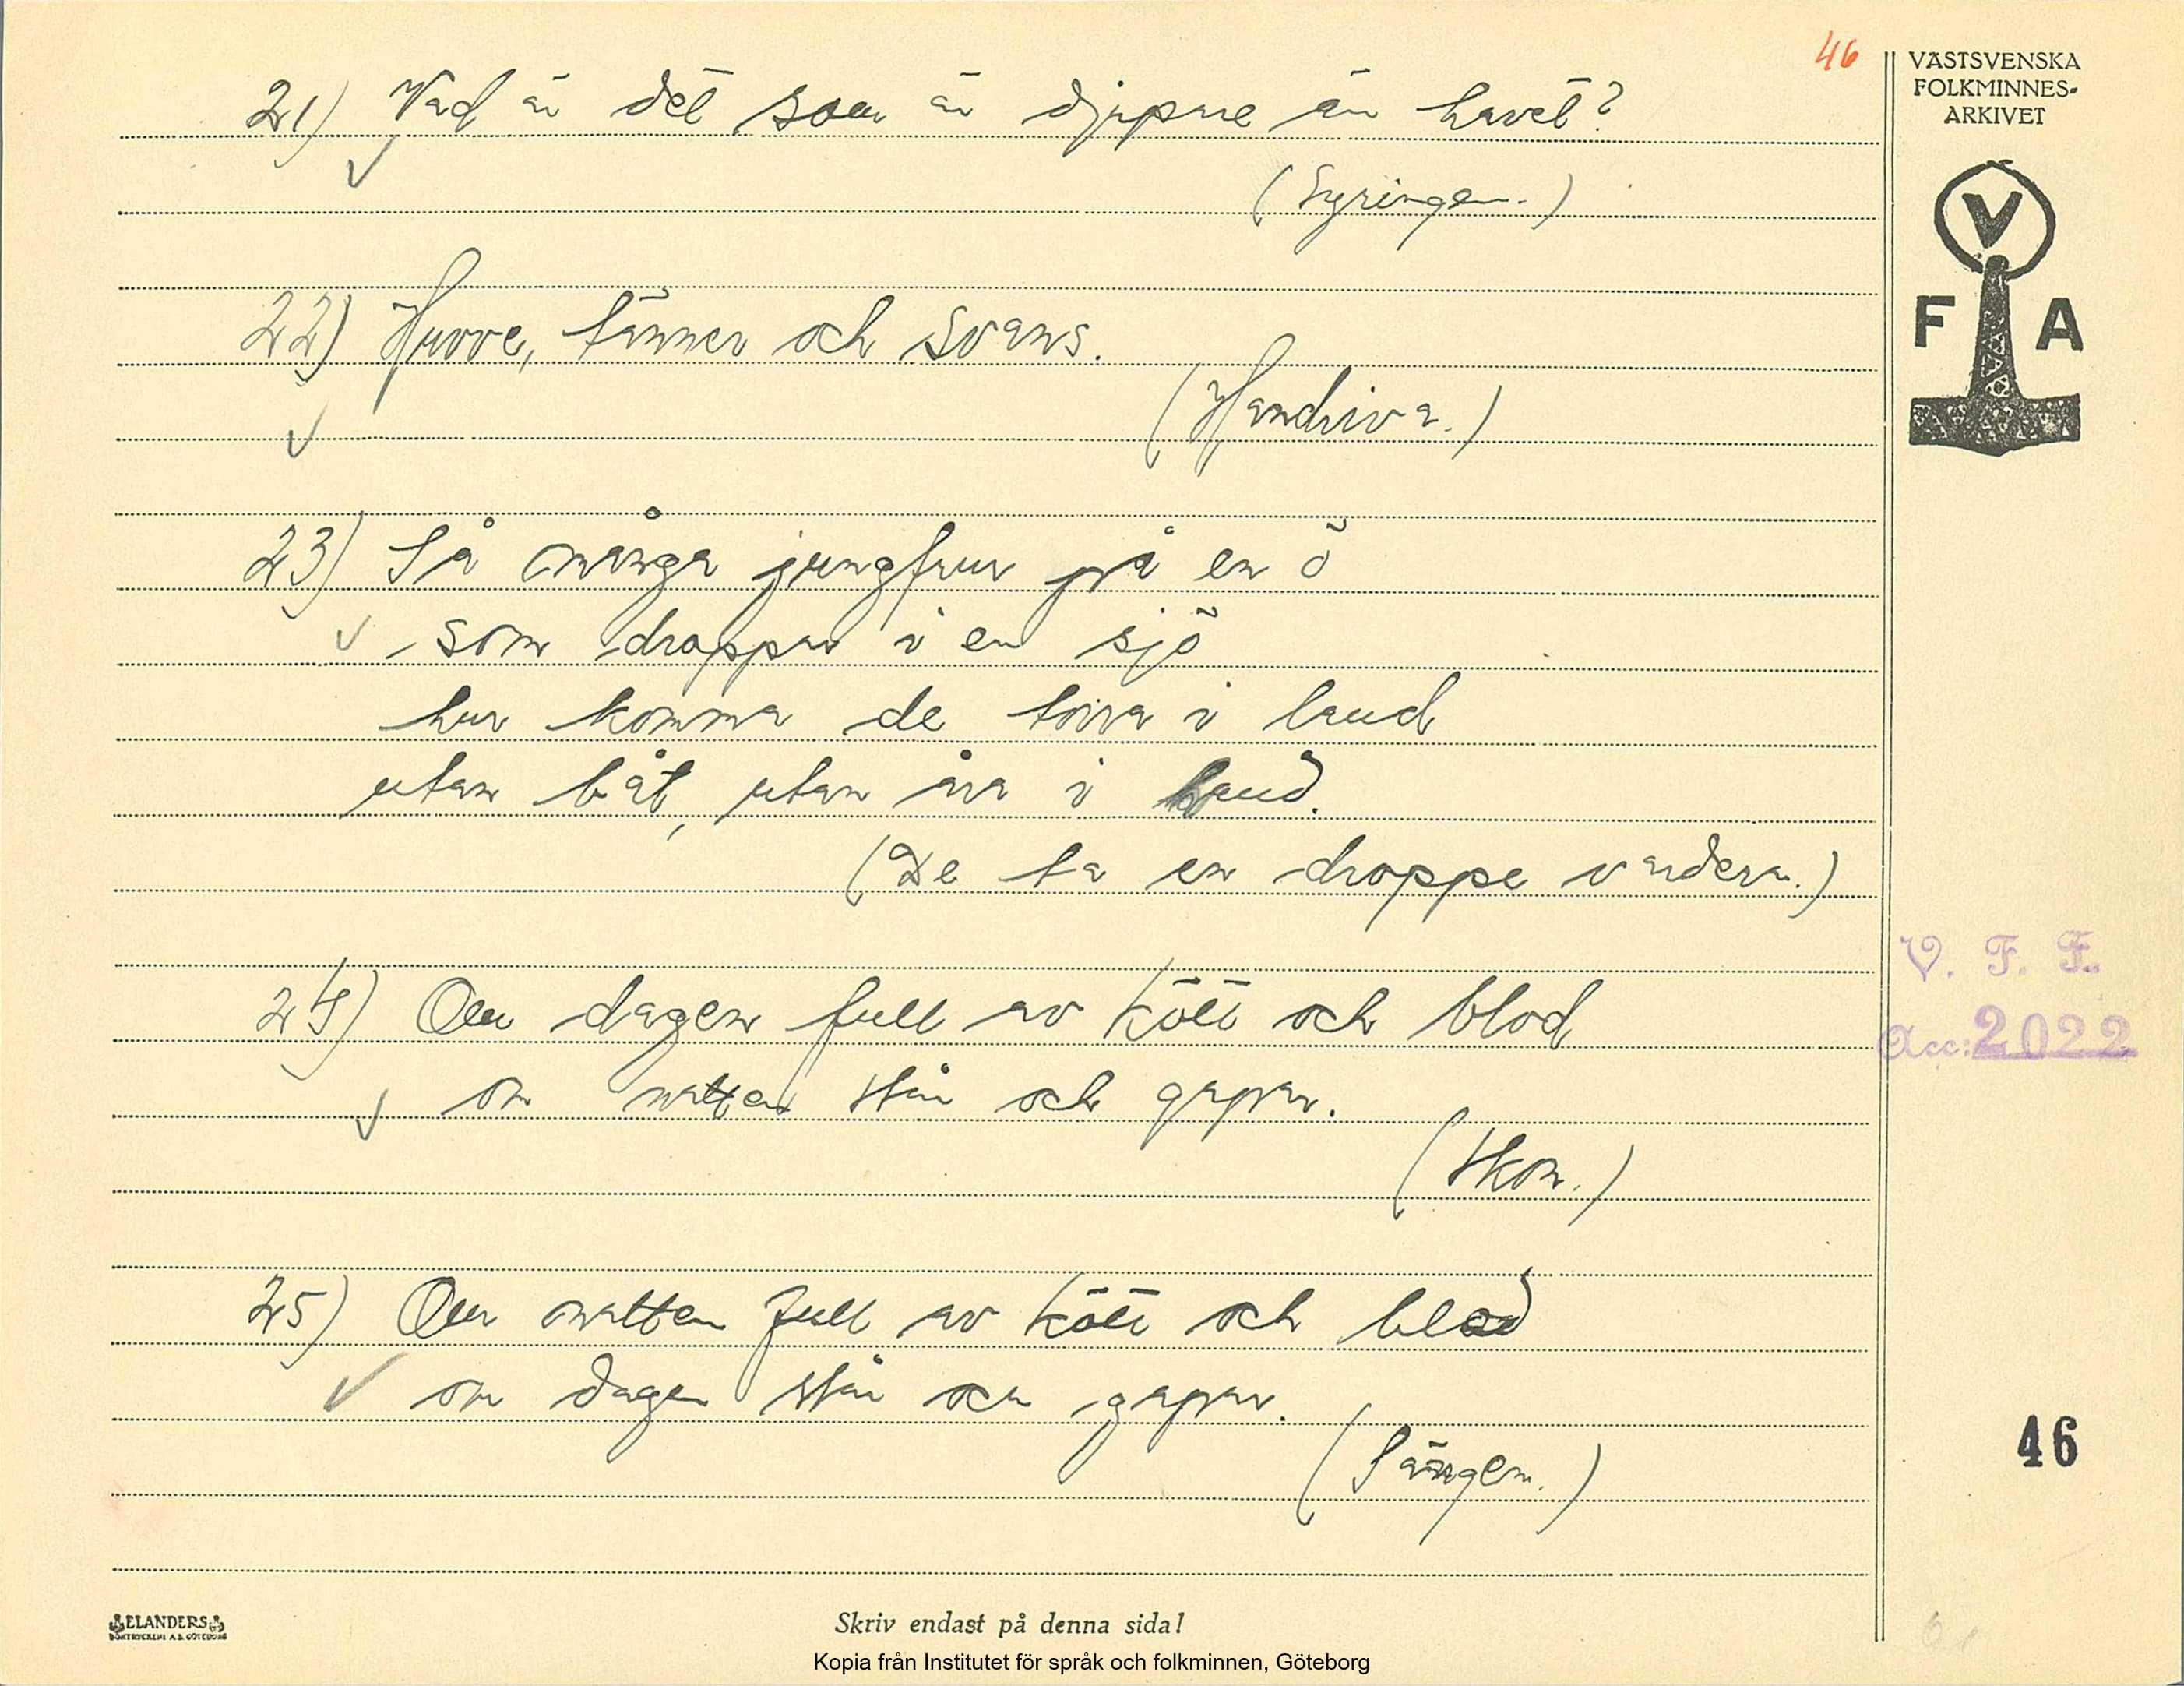 46
21) Vad är det som är djupare än havet?
(Syringen.)
22) Huvve, tänner och svans.
(Handriva.)
23) Så många jungfrur på en ö
som droppar i en sjö
hur komma de torra i land
utan båt, utan åra i hand.
(De ta en droppe vardera.)
24) Om dagen full av kött och blod
om natten står och gapar.
(Skon.)
25) Om natten full av kött och blod
om dagen står och gapar.
(Sängen.)
VÄSTSVENSKA
FOLKMINNES-
ARKIVET
V
F A
V. F. F.
Acc: 2022
46
ELANDERS
BOKTRYCKERI A.B. GÖTEBORG
Skriv endast på denna sida!
Kopia från Institutet för språk och folkminnen, Göteborg